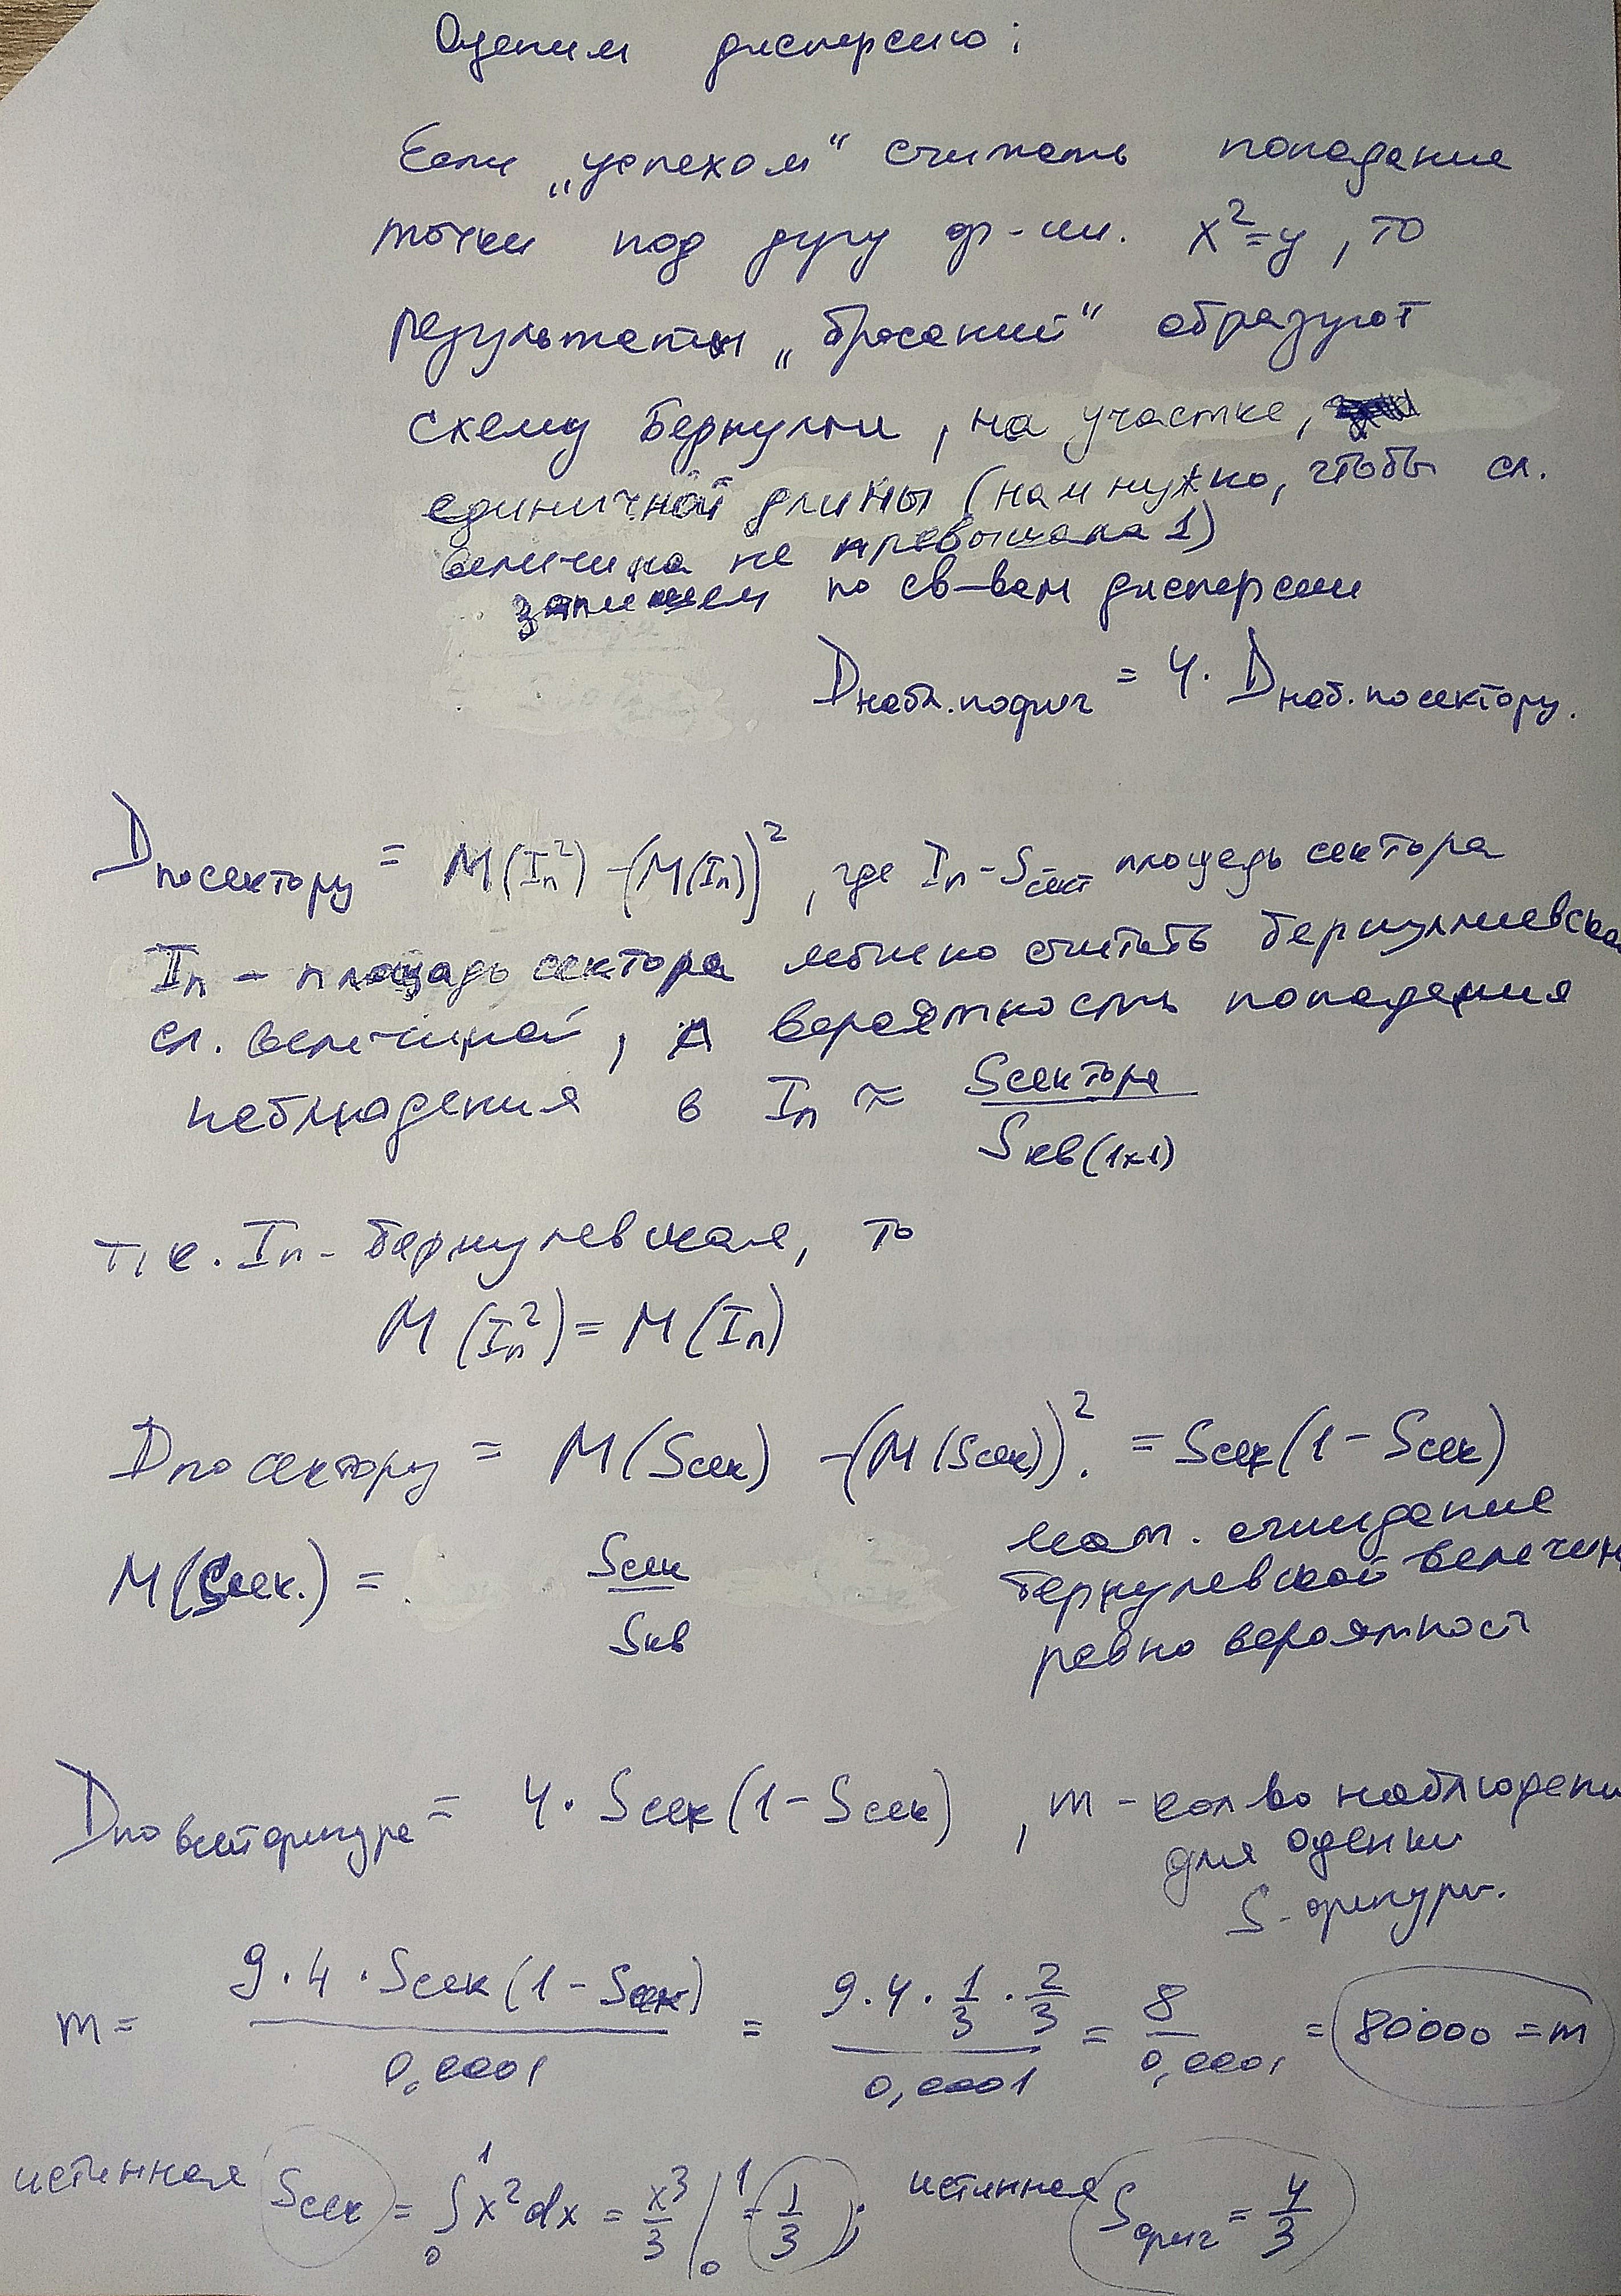 Оценим дисперсию:
Если „успехом“ считать попадание
точки под дугу ф-ии. x²=y, то
результаты „бросаний“ образуют
схему Бернулли, на участке,
единичной длины (нам нужно, чтобы сл.
величина не превышала 1)
запишем по св-вам дисперсии
Dнабл.пофиг = 4. Dнаб.посектору.
Dпосектору = M(Iₙ²) -(M(Iₙ))², где Iₙ-Sсект площадь сектора
Iₙ - площадь сектора можно считать бернуллиевской
сл. величиной, а вероятность попадения
наблюдения в Iₙ ≈ Sсектора / Sкв(1x1)
т.к. Iₙ - бернулевская, то
M(Iₙ²) = M(Iₙ)
Dпо сектору = M(Sсек) -(M(Sсек))². = Sсек(1 - Sсек)
M(Sсек.) = Sсек / Sкв
мат. ожидание
бернулевской величин
равно вероятност
Dпо всей фигуре = 4. Sсек(1 - Sсек), m - кол-во наблюдени
для оценки
S-фигуры.
m = 9.4.Sсек(1 - Sсек) / 0,0001 = 9.4.1/3.2/3 / 0,0001 = 8 / 0,0001 = 80000 = m
истинная Sсек = ∫₀¹ x²dx = x³/3 |₀¹ = 1/3; истинная Sфиг = 4/3